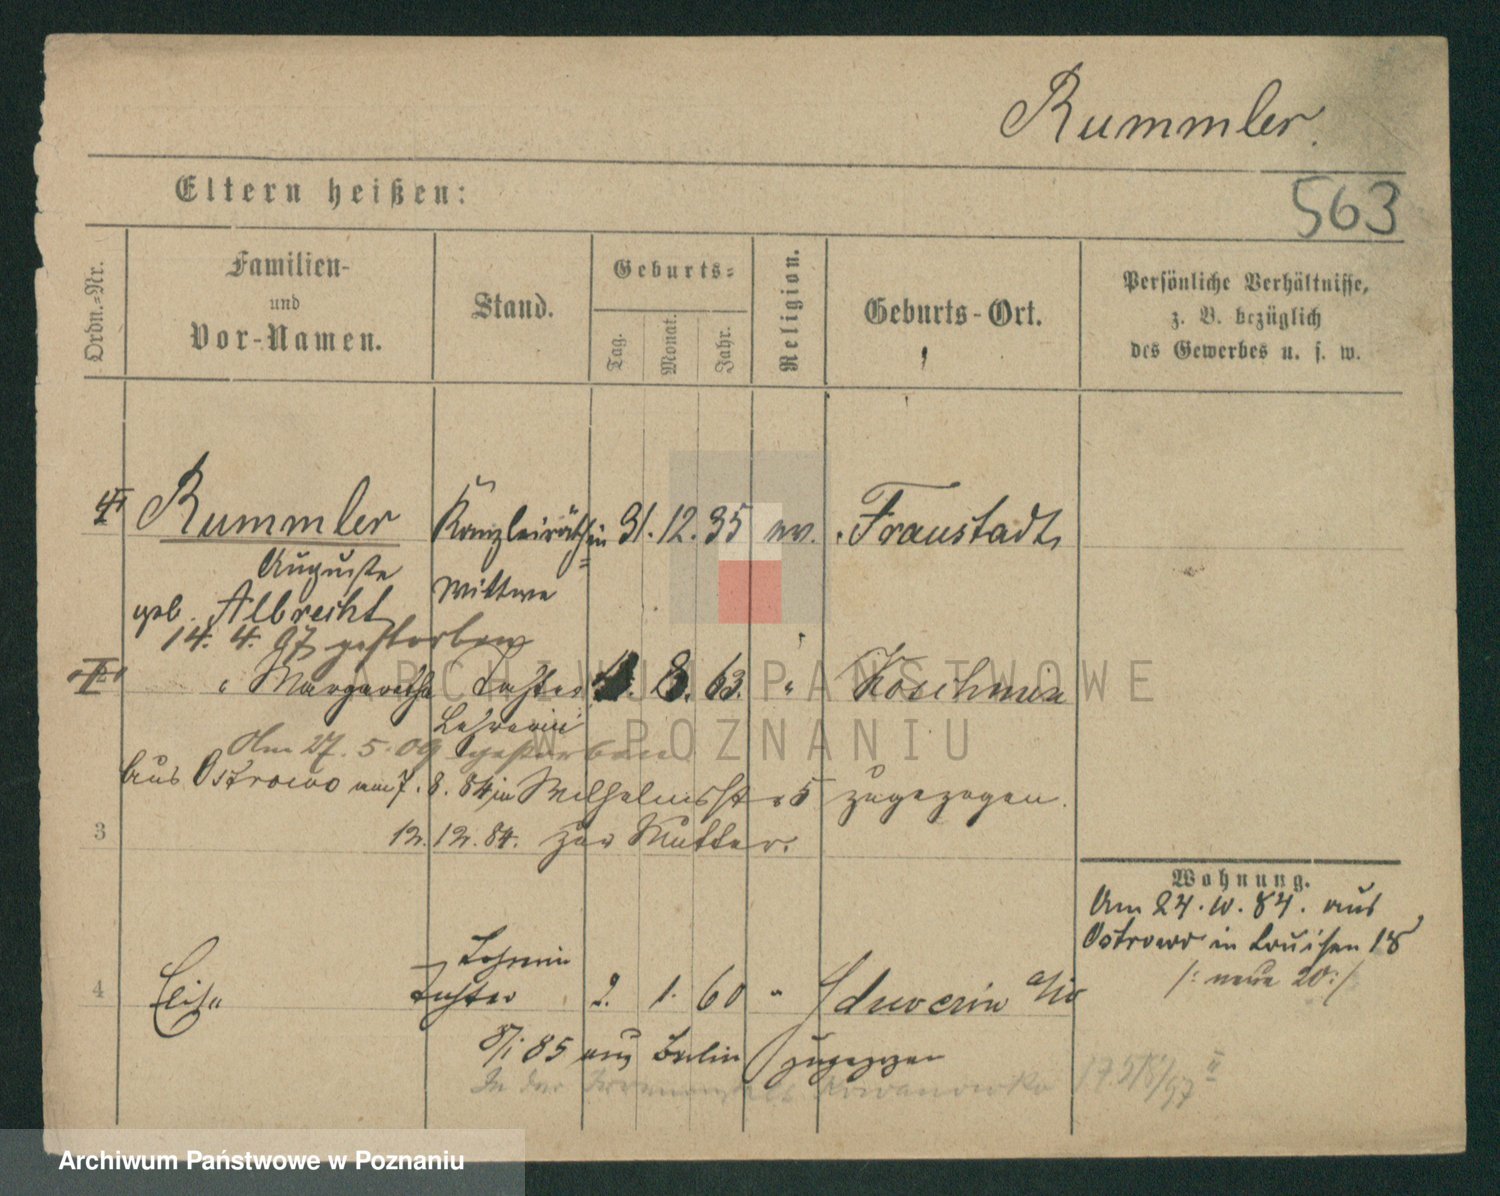 Rummler.
Eltern heißen:
563
Ordn.-Nr.
Familien-
und
Vor-Namen.
Stand.
Geburts-
Tag.
Monat.
Jahr.
Religion.
Geburts-Ort.
Persönliche Verhältnisse,
z. B. bezüglich
des Gewerbes u. s. w.
Rummler Kanzleiräthin 31. 12. 35 ev. Fraustadt
Auguste Wittwe
geb. Albrecht
14. 4. 97 gestorben
" Margarethe Tochter 8. 63. " Koschmin
Lehrerin
Am 27. 5. 09 gestorben
Aus Ostrowo am 7. 8. 84 in Wilhelmsstr 5 zugezogen.
3 12. 12. 84. zur Mutter.
Wohnung.
Am 24. 10. 84. aus
Ostrowo in Louisen 18
/: neue 20 :/
Lehrerin
4 Elise Tochter 2. 1. 60 " Schwerin a/W
8/1 85 aus Berlin zugezogen
In der Irrenanstalt Kowanowko
ARCHIWUM PAŃSTWOWE
W POZNANIU
Archiwum Państwowe w Poznaniu